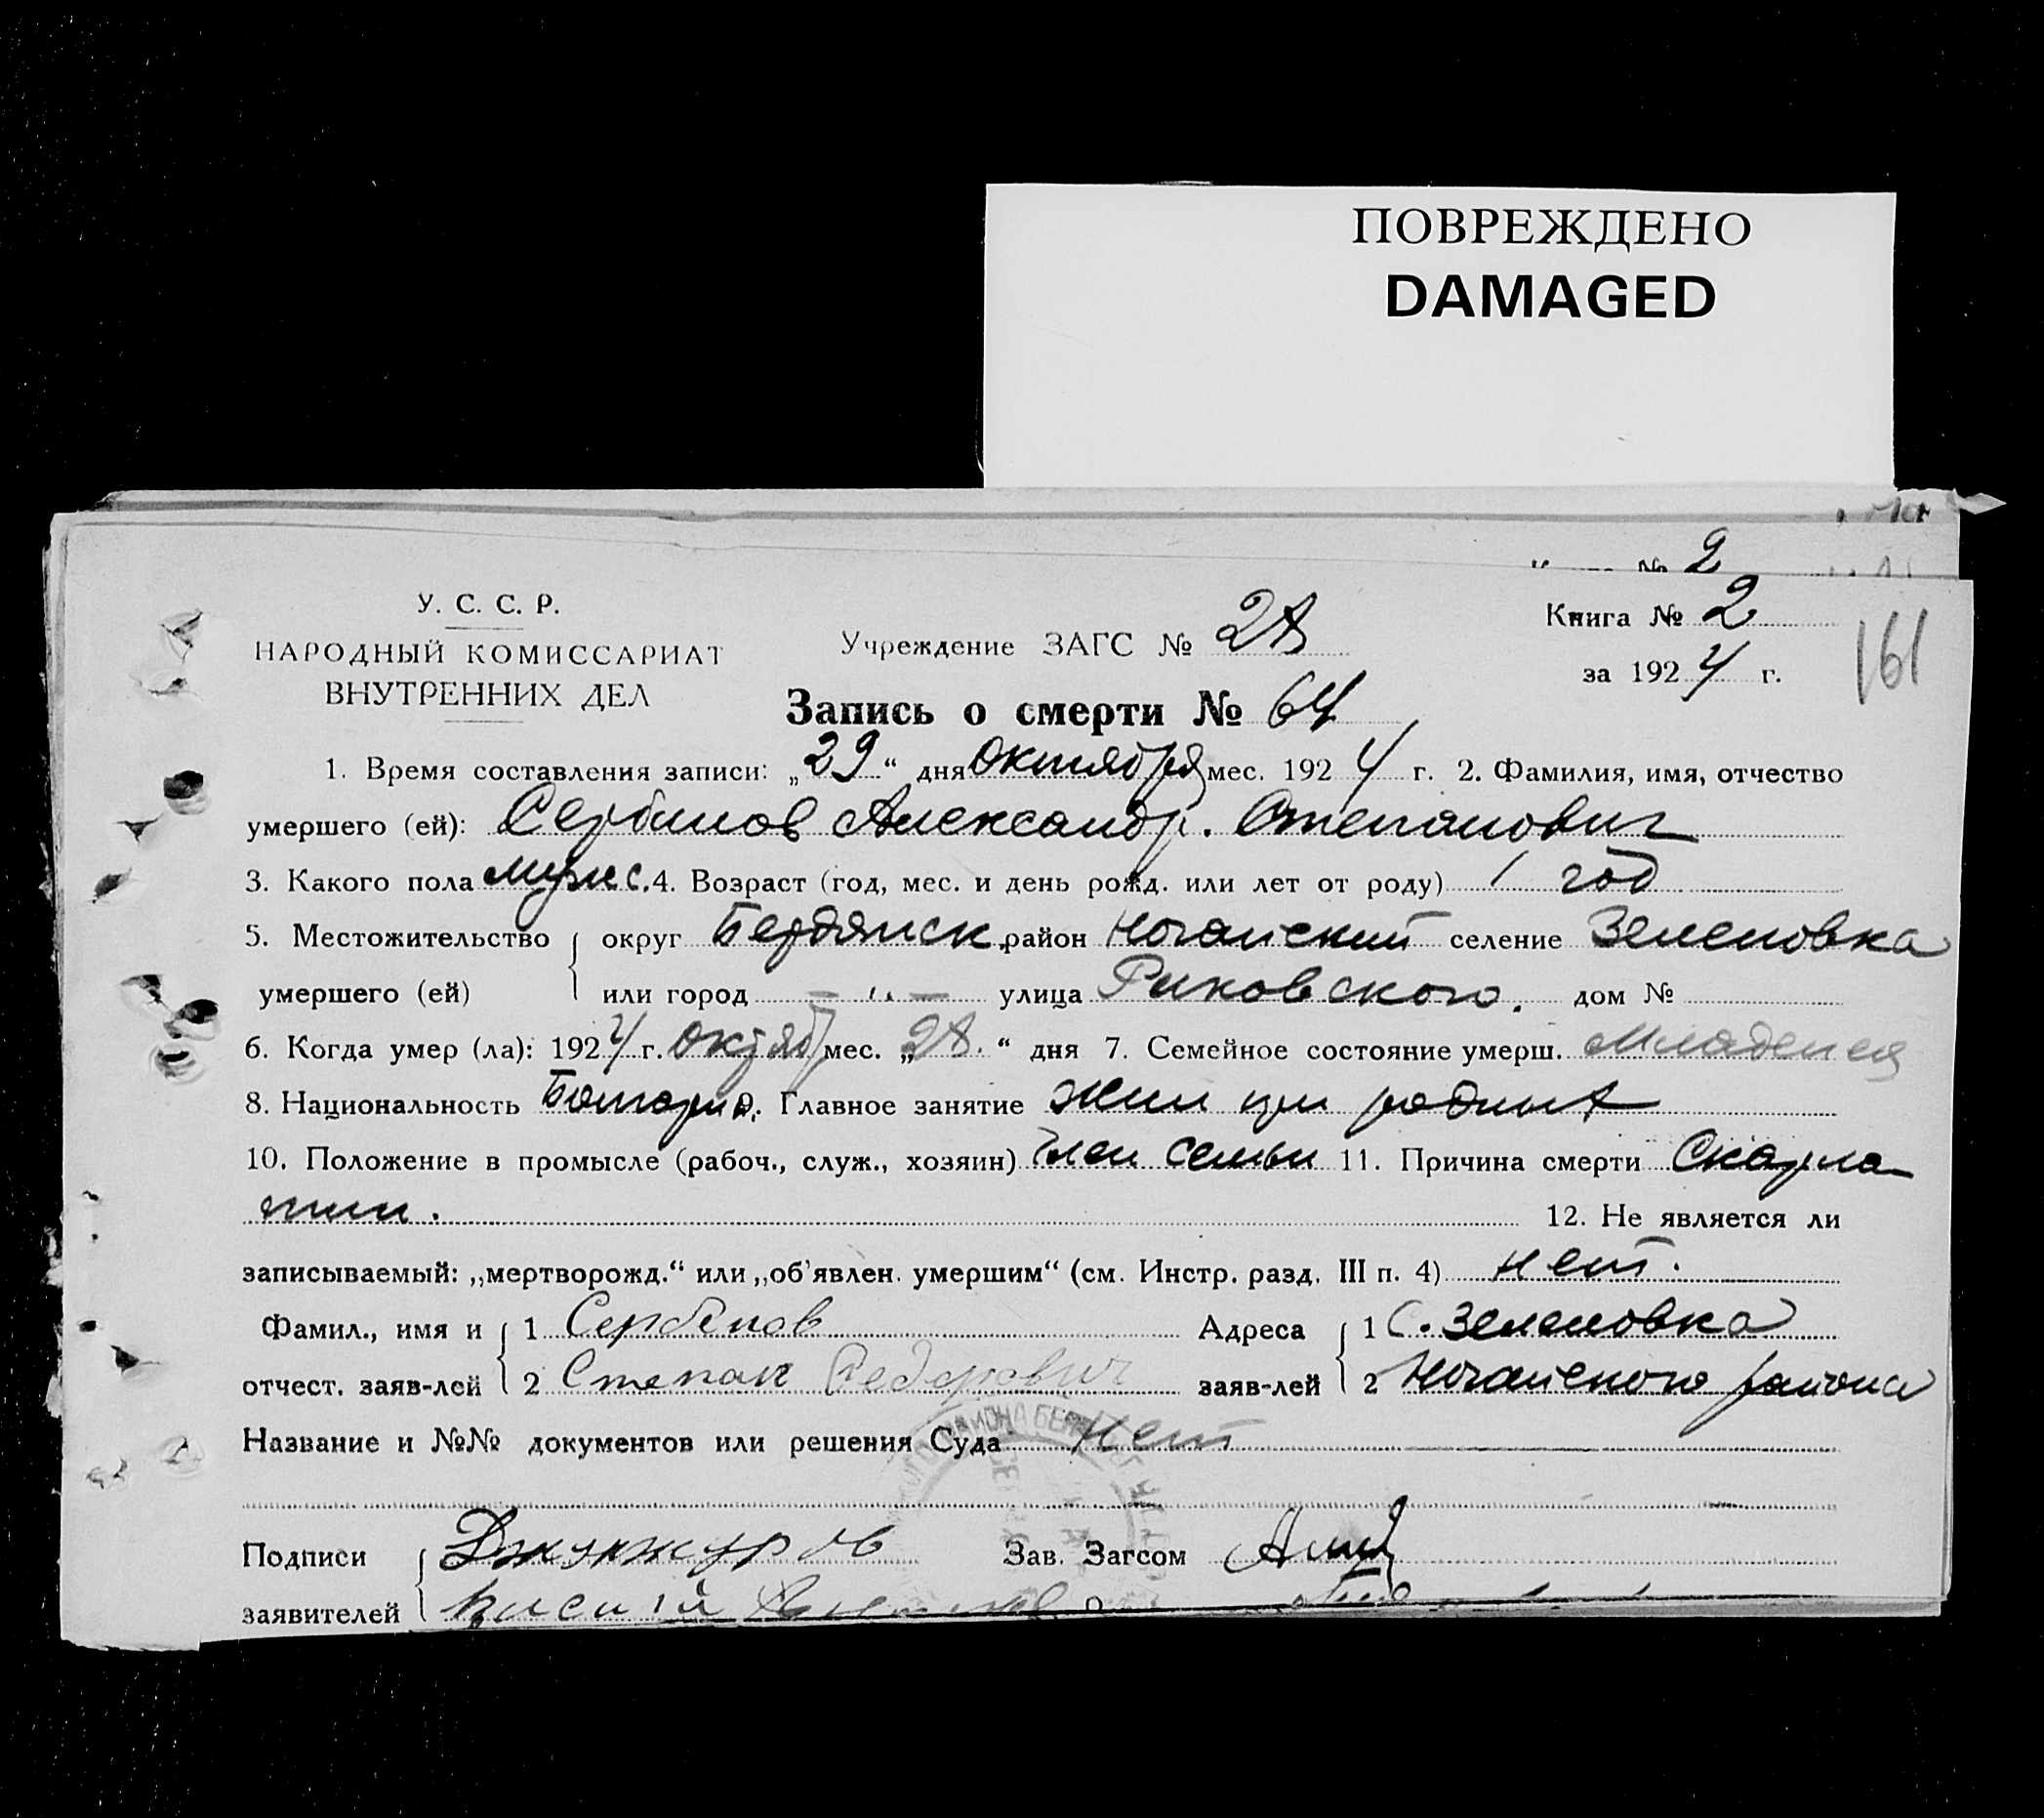 ПОВРЕЖДЕНО
DAMAGED
Книга № 2
У. С. С. Р.
НАРОДНЫЙ КОМИССАРИАТ
ВНУТРЕННИХ ДЕЛ
Учреждение ЗАГС № 28
Книга № 2
за 1924 г.
161
Запись о смерти № 64
1. Время составления записи: „29“ дня октября мес. 1924 г. 2. Фамилия, имя, отчество
умершего (ей): Сербинов Александр. Степанович
3. Какого пола мужс. 4. Возраст (год, мес. и день рожд. или лет от роду) 1 год
5. Местожительство округ Бердянск. район Ногайский селение Зеленовка
умершего (ей) или город — „ — улица Раковского. дом №
6. Когда умер (ла): 1924 г. октяб мес. „28.“ дня 7. Семейное состояние умерш. Младенец
8. Национальность Болгарин 9. Главное занятие жил при родных
10. Положение в промысле (рабоч., служ., хозяин) член семьи 11. Причина смерти Скарла
тин. 12. Не является ли
записываемый: „мертворожд.“ или „об'явлен. умершим“ (см. Инстр. разд. III п. 4) нет.
Фамил., имя и 1 Сербенов Адреса 1 С. Зеленовка
отчест. заяв-лей 2 Степан Федорович заяв-лей 2 Ногайского района
Название и №№ документов или решения Суда нет
Подписи Джунжуров Зав. Загсом
заявителей